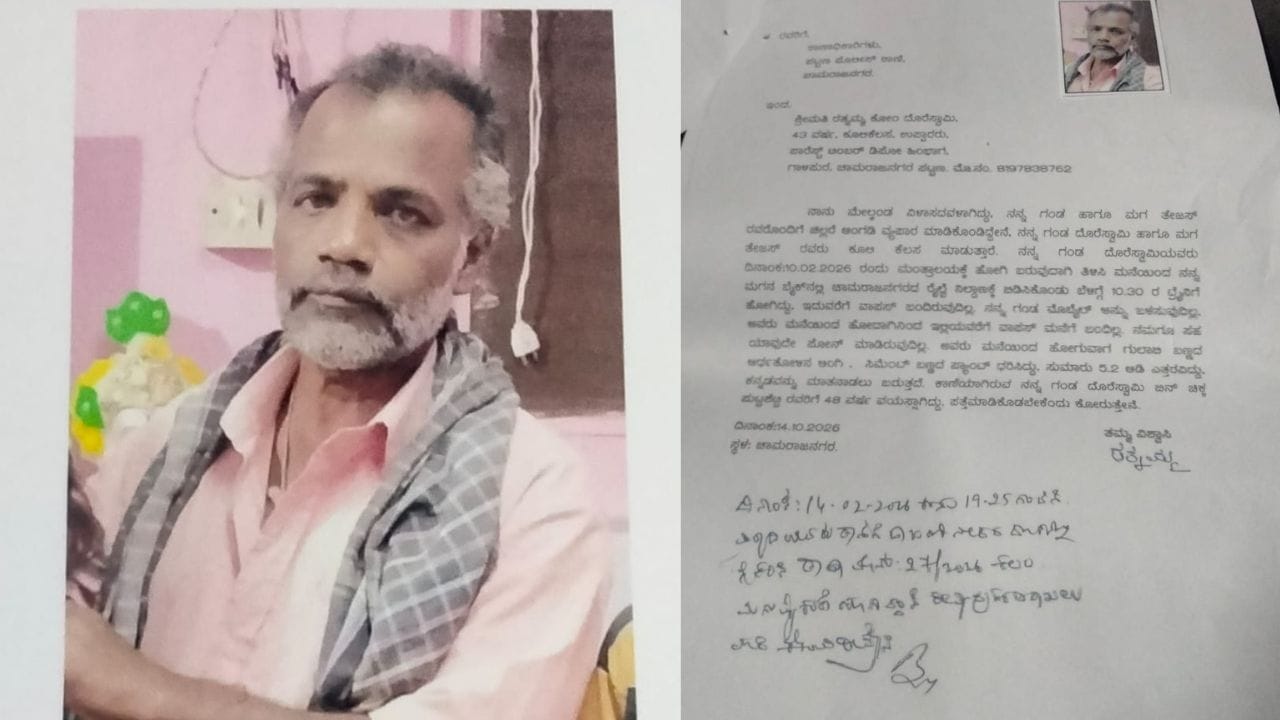 ರವರಿಗೆ,
ಠಾಣಾಧಿಕಾರಿಗಳು,
ಪಟ್ಟಣ ಪೊಲೀಸ್ ಠಾಣೆ,
ಚಾಮರಾಜನಗರ.
ಇಂದ,
ಶ್ರೀಮತಿ ರತ್ನಮ್ಮ ಕೋಂ ದೊರೆಸ್ವಾಮಿ,
43 ವರ್ಷ, ಕೂಲಿಕೆಲಸ, ಉಪ್ಪಾರರು,
ಫಾರೆಸ್ಟ್ ಟಿಂಬರ್ ಡಿಪೋ ಹಿಂಭಾಗ,
ಗಾಳಿಪುರ, ಚಾಮರಾಜನಗರ ಪಟ್ಟಣ. ಮೊ.ನಂ. 8197838762
ನಾನು ಮೇಲ್ಕಂಡ ವಿಳಾಸದವಳಾಗಿದ್ದು, ನನ್ನ ಗಂಡ ಹಾಗೂ ಮಗ ತೇಜಸ್
ರವರೊಂದಿಗೆ ಚಿಲ್ಲರೆ ಅಂಗಡಿ ವ್ಯಪಾರ ಮಾಡಿಕೊಂಡಿದ್ದೇನೆ. ನನ್ನ ಗಂಡ ದೊರೆಸ್ವಾಮಿ ಹಾಗೂ ಮಗ
ತೇಜಸ್ ರವರು ಕೂಲಿ ಕೆಲಸ ಮಾಡುತ್ತಾರೆ. ನನ್ನ ಗಂಡ ದೊರೆಸ್ವಾಮಿಯವರು
ದಿನಾಂಕ:10.02.2026 ರಂದು ಮಂತ್ರಾಲಯಕ್ಕೆ ಹೋಗಿ ಬರುವುದಾಗಿ ತಿಳಿಸಿ ಮನೆಯಿಂದ ನನ್ನ
ಮಗನ ಬೈಕ್‌ನಲ್ಲಿ ಚಾಮರಾಜನಗರದ ರೈಲ್ವೆ ನಿಲ್ದಾಣಕ್ಕೆ ಬಿಡಿಸಿಕೊಂಡು ಬೆಳಗ್ಗೆ 10.30 ರ ಟ್ರೈನಿಗೆ
ಹೋಗಿದ್ದು, ಇದುವರೆಗೆ ವಾಪಸ್ ಬಂದಿರುವುದಿಲ್ಲ. ನನ್ನ ಗಂಡ ಮೊಬೈಲ್ ಅನ್ನು ಬಳಸುವುದಿಲ್ಲ.
ಅವರು ಮನೆಯಿಂದ ಹೋದಾಗಿನಿಂದ ಇಲ್ಲಿಯವರೆಗೆ ವಾಪಸ್ ಮನೆಗೆ ಬಂದಿಲ್ಲ. ನಮಗೂ ಸಹ
ಯಾವುದೇ ಪೋನ್ ಮಾಡಿರುವುದಿಲ್ಲ. ಅವರು ಮನೆಯಿಂದ ಹೋಗುವಾಗ ಗುಲಾಬಿ ಬಣ್ಣದ
ಅರ್ಧತೋಳಿನ ಅಂಗಿ, ಸಿಮೆಂಟ್ ಬಣ್ಣದ ಪ್ಯಾಂಟ್ ಧರಿಸಿದ್ದು, ಸುಮಾರು 5.2 ಅಡಿ ಎತ್ತರವಿದ್ದು,
ಕನ್ನಡವನ್ನು ಮಾತನಾಡಲು ಬರುತ್ತದೆ. ಕಾಣೆಯಾಗಿರುವ ನನ್ನ ಗಂಡ ದೊರೆಸ್ವಾಮಿ ಬಿನ್ ಚಿಕ್ಕ
ಪುಟ್ಟಶೆಟ್ಟಿ ರವರಿಗೆ 48 ವರ್ಷ ವಯಸ್ಸಾಗಿದ್ದು, ಪತ್ತೆಮಾಡಿಕೊಡಬೇಕೆಂದು ಕೋರುತ್ತೇನೆ.
ದಿನಾಂಕ:14.10.2026
ಸ್ಥಳ: ಚಾಮರಾಜನಗರ.
ತಮ್ಮ ವಿಶ್ವಾಸಿ
ರತ್ನಮ್ಮ
ದಿನಾಂಕ: 14-02-2026 19-25
27/2026